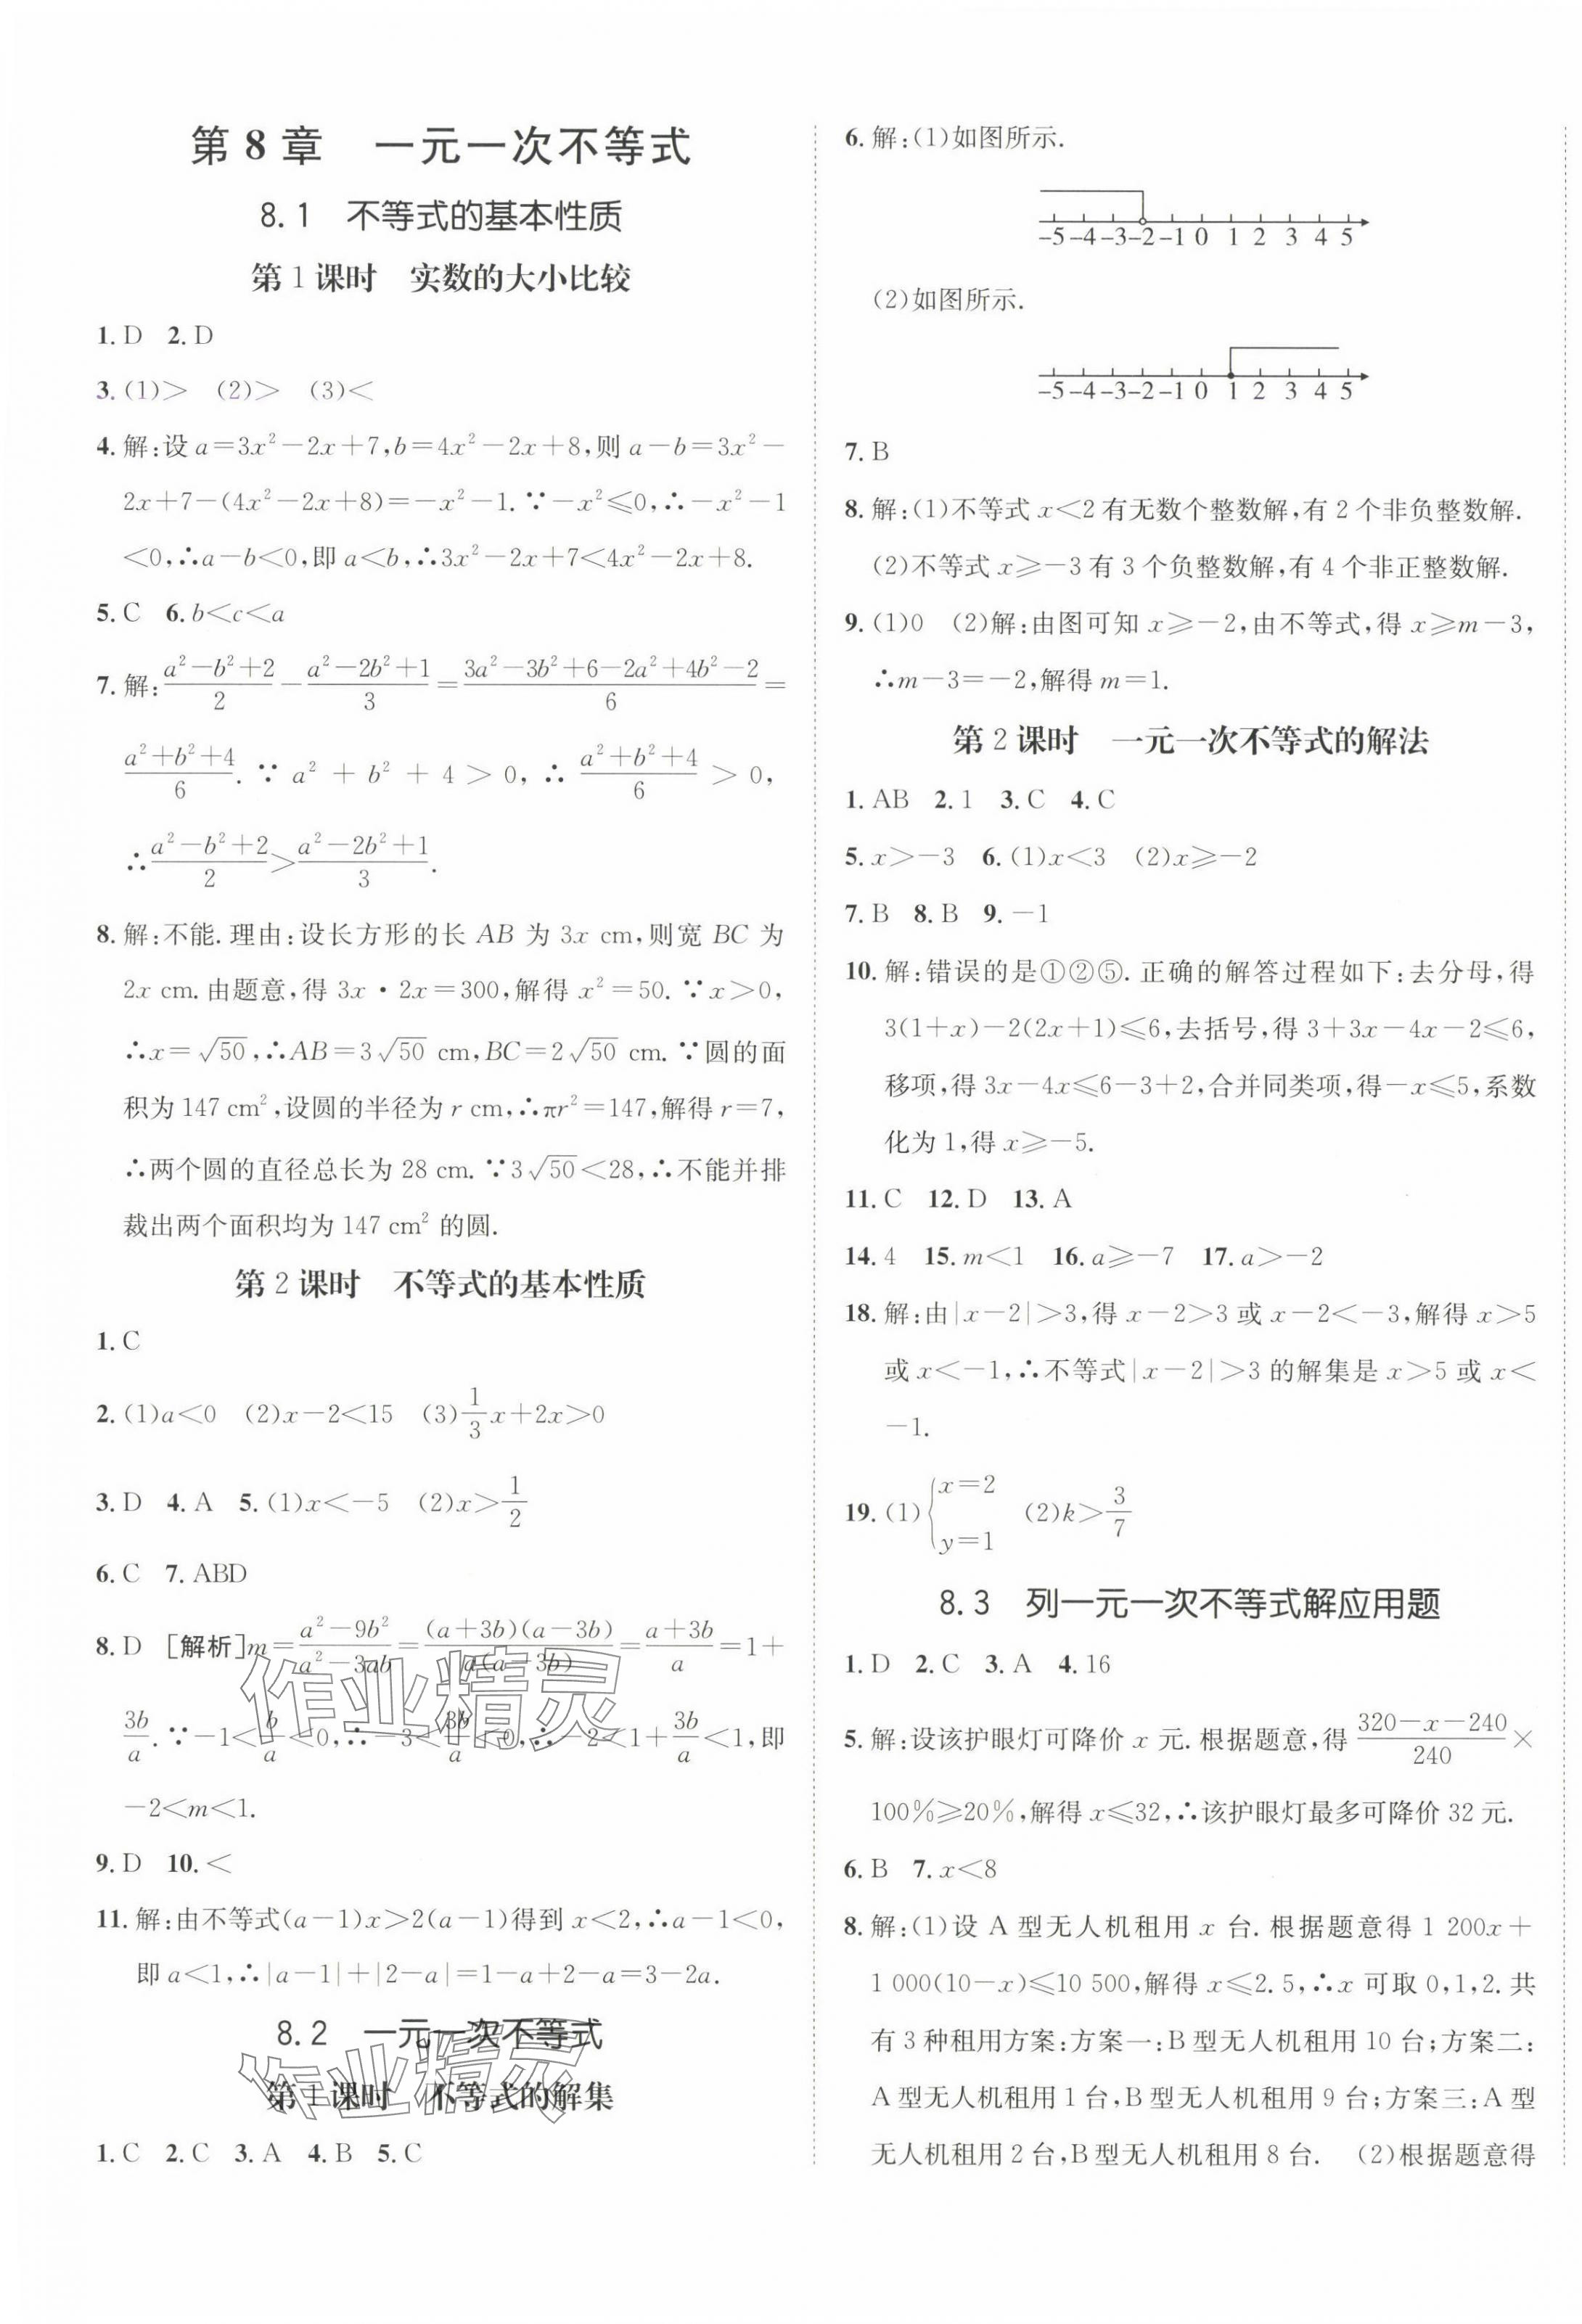 第8章 一元一次不等式
8.1 不等式的基本性质
第1课时 实数的大小比较
1.D 2.D
3.(1)> (2)> (3)<
4.解:设a=3x²-2x+7,b=4x²-2x+8,则a-b=3x²-
2x+7-(4x²-2x+8)=-x²-1.∵-x²≤0,∴-x²-1
<0,∴a-b<0,即a<b,∴3x²-2x+7<4x²-2x+8.
5.C 6.b<c<a
7.解:(a²-b²+2)/2-(a²-2b²+1)/3=(3a²-3b²+6-2a²+4b²-2)/6=
(a²+b²+4)/6.∵a²+b²+4>0,∴(a²+b²+4)/6>0,
∴(a²-b²+2)/2>(a²-2b²+1)/3.
8.解:不能.理由:设长方形的长AB为3x cm,则宽BC为
2x cm.由题意,得3x·2x=300,解得x²=50.∵x>0,
∴x=√50,∴AB=3√50 cm,BC=2√50 cm.∵圆的面
积为147 cm²,设圆的半径为r cm,∴πr²=147,解得r=7,
∴两个圆的直径总长为28 cm.∵3√50<28,∴不能并排
裁出两个面积均为147 cm²的圆.
第2课时 不等式的基本性质
1.C
2.(1)a<0 (2)x-2<15 (3)1/3x+2x>0
3.D 4.A 5.(1)x<-5 (2)x>1/2
6.C 7.ABD
8.D [解析]m=(a²-9b²)/(a²-3ab)=(a+3b)(a-3b)/a(a-3b)=(a+3b)/a=1+
3b/a.∵-1<b/a<0,∴-3<3b/a<0,∴-2<1+3b/a<1,即
-2<m<1.
作业精灵
9.D 10.<
11.解:由不等式(a-1)x>2(a-1)得到x<2,∴a-1<0,
即a<1,∴|a-1|+|2-a|=1-a+2-a=3-2a.
8.2 一元一次不等式
第1课时 不等式的解集
作业精灵
1.C 2.C 3.A 4.B 5.C
6.解:(1)如图所示.
-5 -4 -3 -2 -1 0 1 2 3 4 5
(2)如图所示.
-5 -4 -3 -2 -1 0 1 2 3 4 5
7.B
8.解:(1)不等式x<2有无数个整数解,有2个非负整数解.
(2)不等式x≥-3有3个负整数解,有4个非正整数解.
9.(1)0 (2)解:由图可知x≥-2,由不等式,得x≥m-3,
∴m-3=-2,解得m=1.
第2课时 一元一次不等式的解法
1.AB 2.1 3.C 4.C
5.x>-3 6.(1)x<3 (2)x≥-2
7.B 8.B 9.-1
10.解:错误的是①②⑤.正确的解答过程如下:去分母,得
3(1+x)-2(2x+1)≤6,去括号,得3+3x-4x-2≤6,
移项,得3x-4x≤6-3+2,合并同类项,得-x≤5,系数
化为1,得x≥-5.
11.C 12.D 13.A
14.4 15.m<1 16.a≥-7 17.a>-2
18.解:由|x-2|>3,得x-2>3或x-2<-3,解得x>5
或x<-1,∴不等式|x-2|>3的解集是x>5或x<
-1.
19.(1){x=2 y=1 (2)k>3/7
8.3 列一元一次不等式解应用题
1.D 2.C 3.A 4.16
5.解:设该护眼灯可降价x元.根据题意,得(320-x-240)/240×
100%≥20%,解得x≤32,∴该护眼灯最多可降价32元.
6.B 7.x<8
8.解:(1)设A型无人机租用x台.根据题意得1 200x+
1 000(10-x)≤10 500,解得x≤2.5,∴x可取0,1,2.共
有3种租用方案:方案一:B型无人机租用10台;方案二:
A型无人机租用1台,B型无人机租用9台;方案三:A型
无人机租用2台,B型无人机租用8台. (2)根据题意得